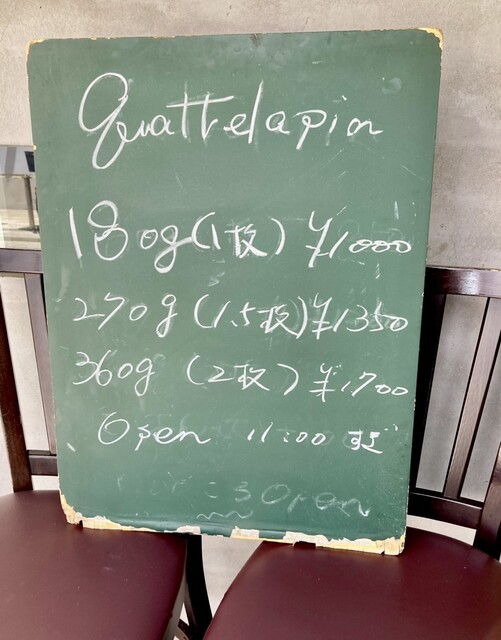 Quattelapin
180g(1枚) ¥1000
270g(1.5枚)¥1350
360g (2枚) ¥1700
Open 11:00
Open